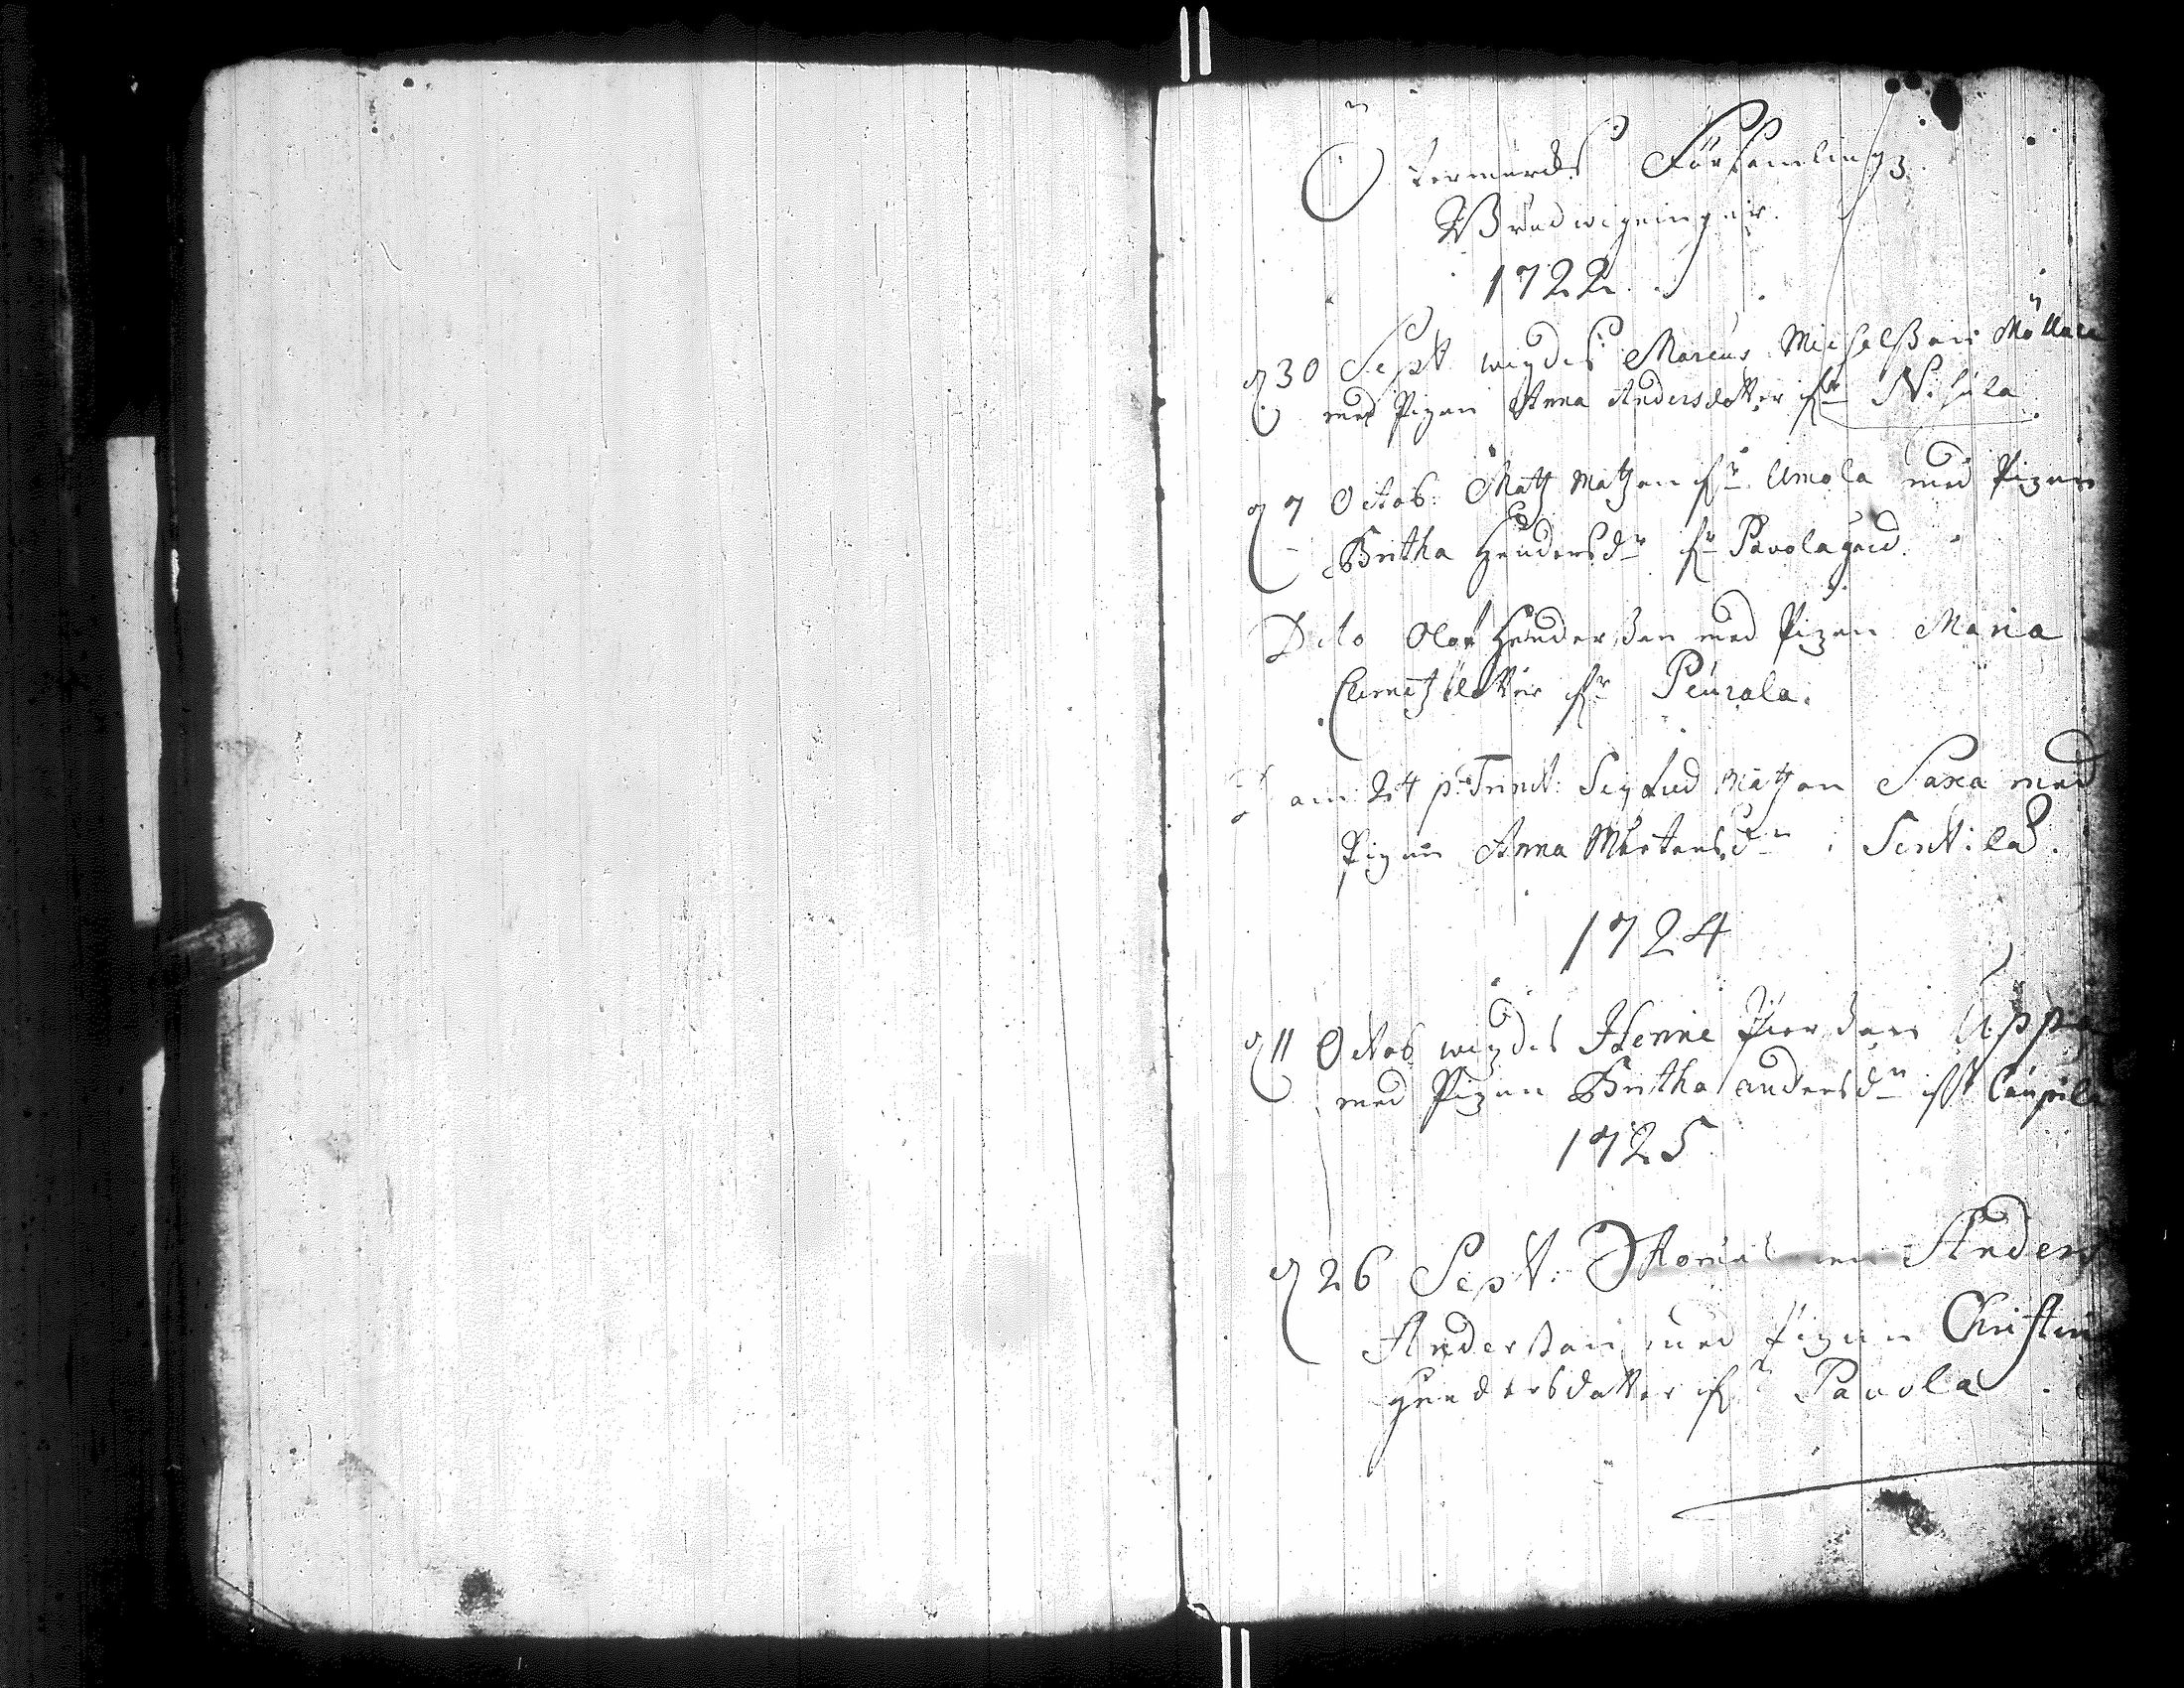 Ötermarcks Försambling3
Brudwigningar.
1722.
d 30 Sept wigdes Marcus Michelßon Möllare
med Pigan Anna Andersdotter fr Nisula
d 7 Octob: Matz Matzon fr Umola med Pigan
Britha Hendersdr fr Pavolagård.
Dito Olof Henderßon med Pigan Maria
Clemetzdotter fr Peurala.
D om 24 p. Trinit: Sigfred Matzon Saxa med
Pigan Anna Mårtensdr i Sentilä.
1724
d 11 Octob wigdes Henric Piersson Uppa
med Pigan Britha andersdr ifr Caupila
1725
d 26 Sept: Anders
Anderßon med Pigan Christin
Hendersdotter fr Pavola.